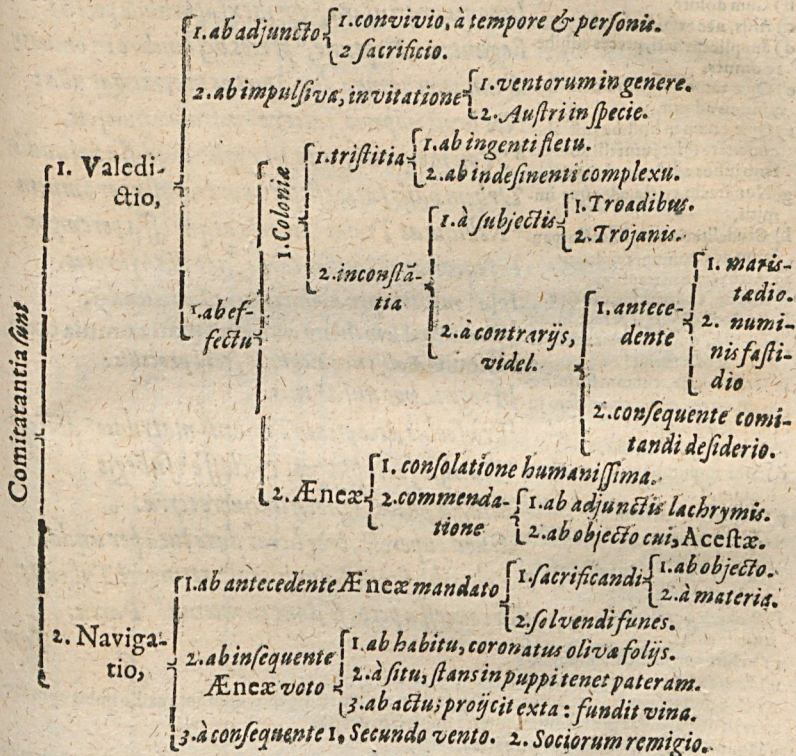 1. ab adjuncto 1. convivio, à tempore & personis.
2 sacrificio.
2. ab impulsiva, invitatione 1. ventorum in genere.
2. Austri in specie.
1. Valedi-
ctio,
1. ab ef-
fectu
1. Coloniæ
1. tristitia 1. ab ingenti fletu.
2. ab indefinenti complexu.
2. inconstã-
tia
1. à subjectis 1. Troadibus.
2. Trojanis.
2. à contrarijs,
videl.
1. antece-
dente
1. maris-
tædio.
2. numi-
nis fasti-
dio
2. consequente comi-
tandi desiderio.
2. Æneæ 1. consolatione humanissima.
2. commenda-
tione
1. ab adjunctis lachrymis.
2. ab objecto cui, Acestæ.
Comitatantia sunt
2. Naviga-
tio,
1. ab antecedente Æneæ mandato 1. sacrificandi 1. ab objecto.
2. à materia.
2. solvendi funes.
2. ab insequente
Æneæ voto
1. ab habitu, coronatus olivæ folijs.
2. à situ, stans in puppi tenet pateram.
3. ab actu; proijcit exta: fundit vina.
3. à consequente 1. Secundo vento. 2. Sociorum remigio.